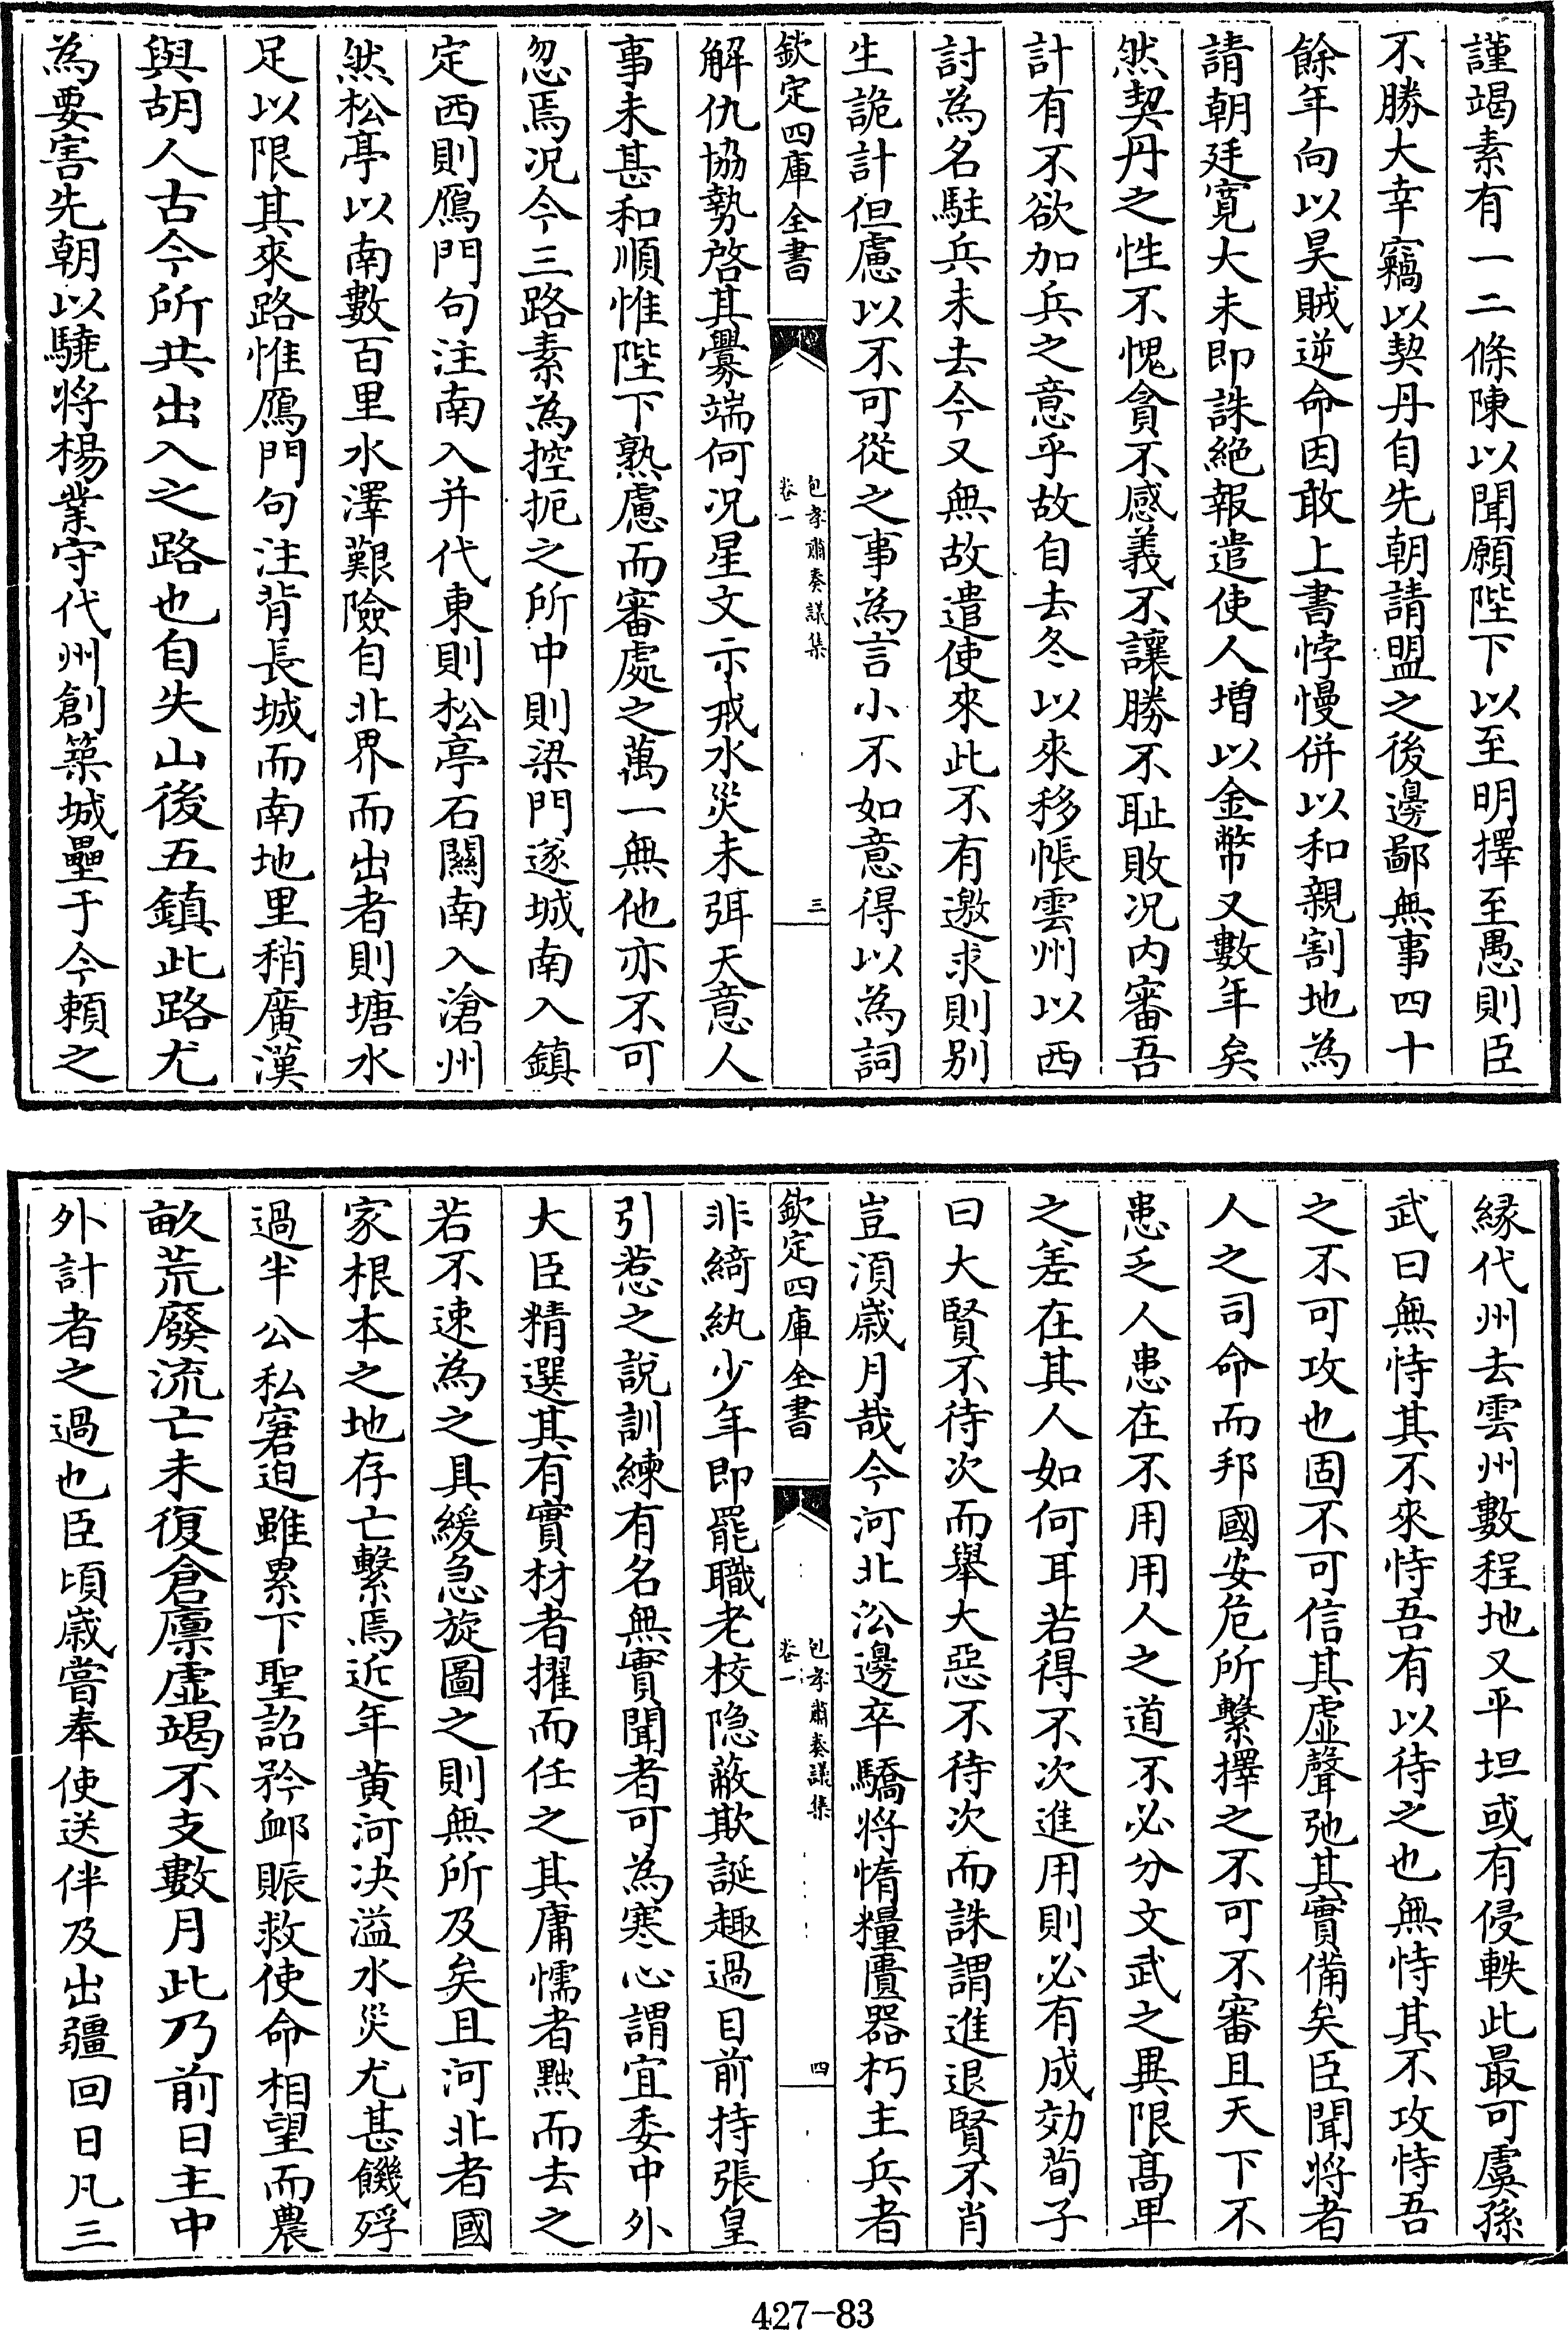 謹竭素有一二條陳以聞願陛下以至明擇至愚則臣
不勝大幸竊以契丹自先朝請盟之後邊鄙無事四十
餘年向以昊賊逆命因敢上書悖慢併以和親割地為
請朝廷寛大未即誅絶報遣使人增以金幣又數年矣
然契丹之性不愧貪不感義不讓勝不耻敗况内審吾
計有不欲加兵之意乎故自去冬以來移帳雲州以西
討為名駐兵未去今又無故遣使來此不有邀求則别
生詭計但慮以不可從之事為言小不如意得以為詞
欽定四庫全書
包孝肅奏議集
卷一
三
解仇協勢啓其釁端何况星文示戒水災未弭天意人
事未甚和順惟陛下熟慮而審處之萬一無他亦不可
忽焉况今三路素為控扼之所中則梁門遂城南入鎮
定西則鴈門句注南入并代東則松亭石關南入滄州
然松亭以南數百里水澤艱險自北界而出者則塘水
足以限其來路惟鴈門句注背長城而南地里稍廣漢
與胡人古今所共出入之路也自失山後五鎮此路尤
為要害先朝以驍將楊業守代州創築城壘于今頼之
緣代州去雲州數程地又平坦或有侵軼此最可虞孫
武曰無恃其不來恃吾有以待之也無恃其不攻恃吾
之不可攻也固不可信其虛聲弛其實備矣臣聞將者
人之司命而邦國安危所繫擇之不可不審且天下不
患乏人患在不用用人之道不必分文武之異限髙卑
之差在其人如何耳若得不次進用則必有成効荀子
曰大賢不待次而舉大惡不待次而誅謂進退賢不肖
豈湏歲月哉今河北㳂邊卒驕將惰糧匱器朽主兵者
欽定四庫全書
包孝肅奏議集
卷一
四
非綺紈少年即罷職老校隐蔽欺誕趣過目前持張皇
引惹之説訓練有名無實聞者可為寒心謂宜委中外
大臣精選其有實材者擢而任之其庸懦者黜而去之
若不速為之具緩急旋圖之則無所及矣且河北者國
家根本之地存亡繫焉近年黄河决溢水災尤甚饑殍
過半公私窘迫雖累下聖詔矜䘏賑救使命相望而農
畝荒廢流亡未復倉廪虛竭不支數月此乃前日主中
外計者之過也臣頃歲嘗奉使送伴及出疆回日凡三
427-83